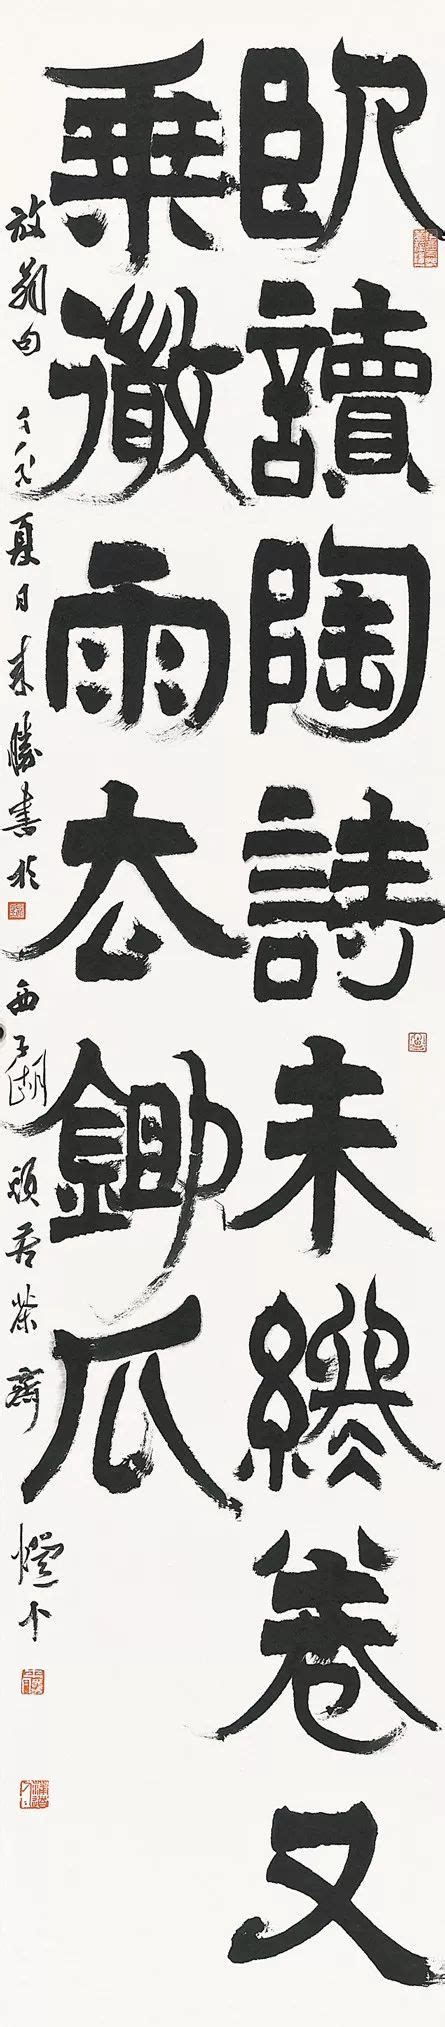 卧讀陶詩未終卷又
乘微雨去鋤瓜
放翁句 夏日來勝書於西子湖頭若榮齋燈下